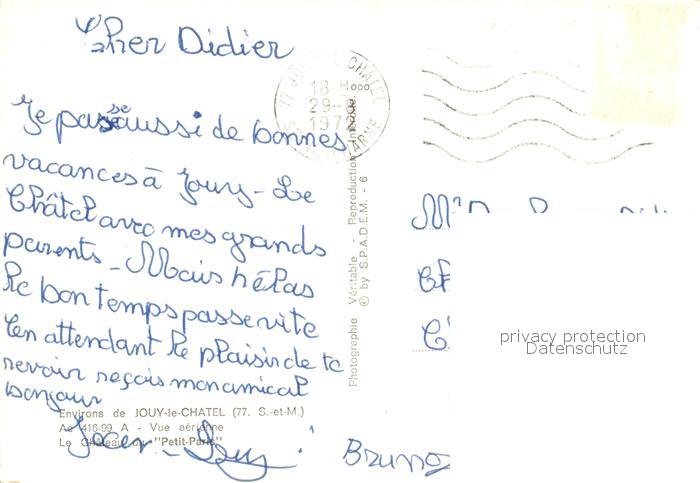 Cher Didier
Je passe aussi de bonnes
vacances à Jouy-Le
Châtel avec mes grands
parents - Mais hélas
le bon temps passe vite
En attendant le plaisir de te
revoir reçois mon amical
bonjour
Environs de JOUY-le-CHATEL (77. S.-et-M.)
A. 416-99 A - Vue aérienne
Le Château du "Petit-Paris"
Jean-
Photographie Véritable - Reproduction Interdite
© by S.P.A.D.E.M. - 6
77 JOUY LE CHATEL
18 H
29-8
197
MARNE
privacy protection
Datenschutz